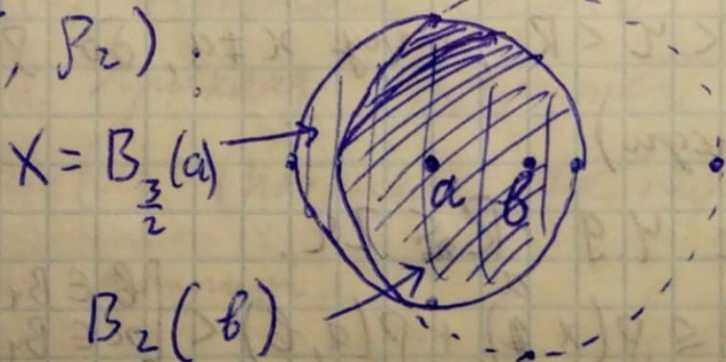 , ρ₂) :
X = B_{3/2}(a)
a b
B₂(b)